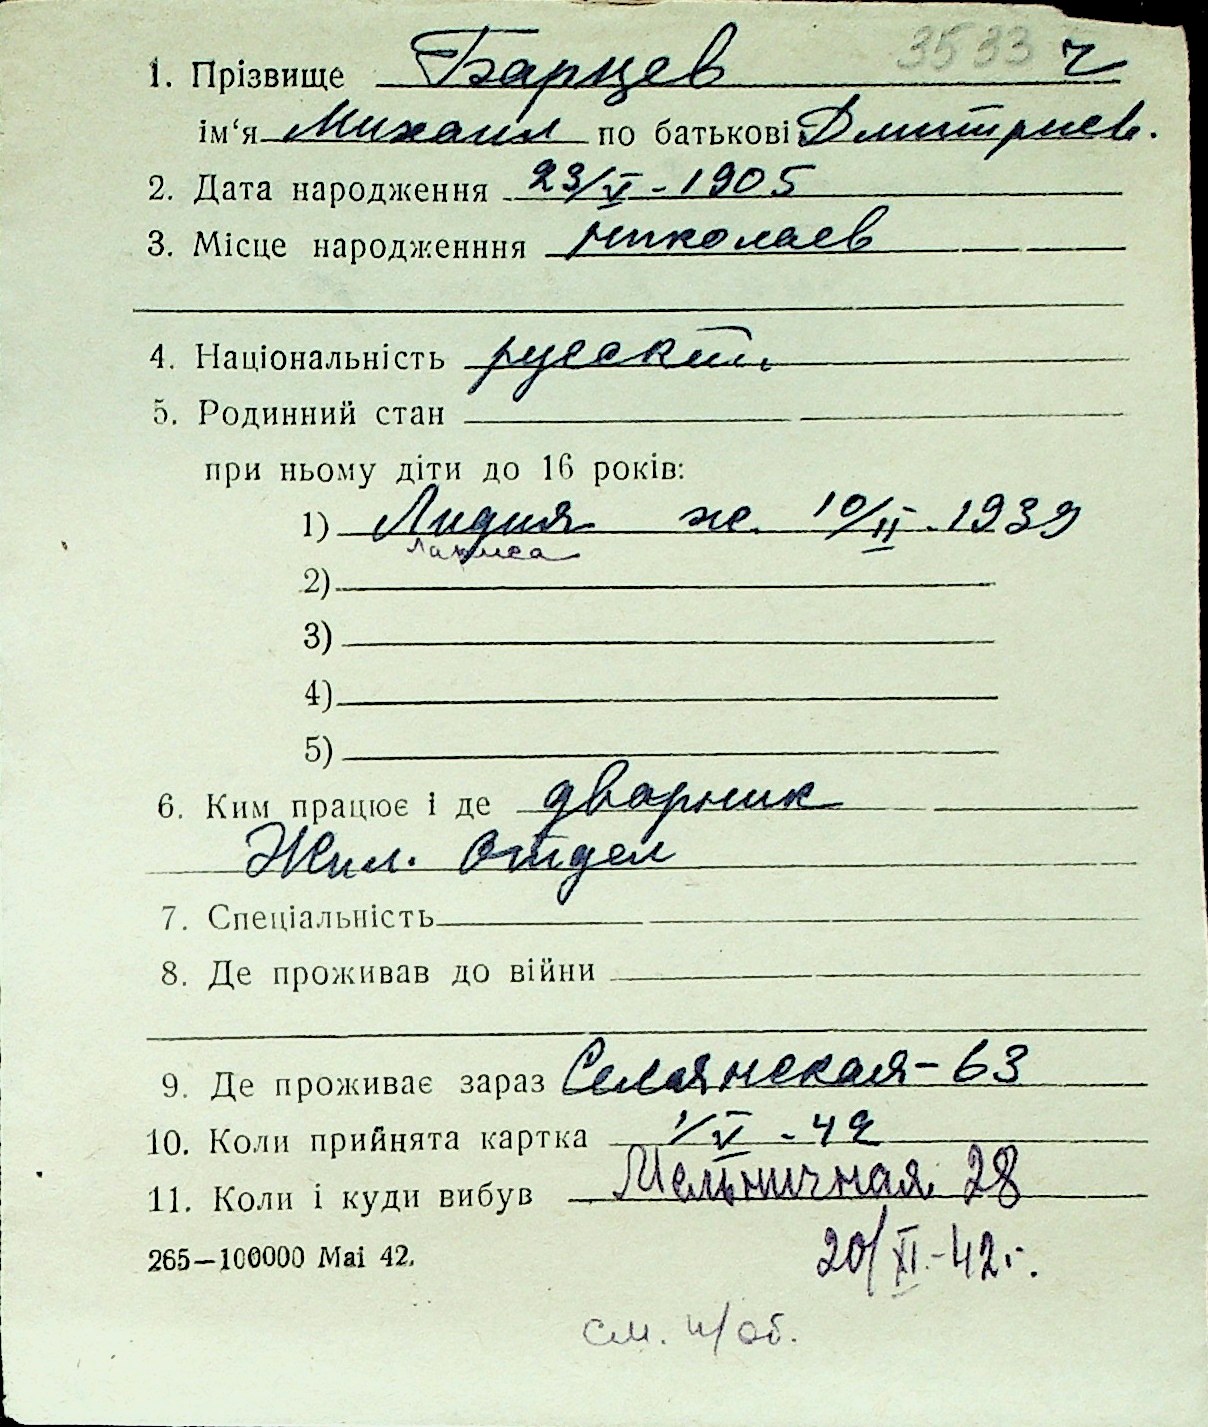 3533 ч
1. Прізвище Барцев
ім‘я Михаил по батькові Дмитриев.
2. Дата народження 23/V - 1905
3. Місце народженння Николаев
4. Національність русский
5. Родинний стан
при ньому діти до 16 років:
1) Лидия ж. 10/II - 1939
Лариса
2)
3)
4)
5)
6. Ким працює і де дворник
Жил. отдел
7. Спеціальність
8. Де проживав до війни
9. Де проживає зараз Селянская - 63
10. Коли прийнята картка 1/V - 42
11. Коли і куди вибув Мельничная 28
265—100000 Маі 42.
20/XI - 42 г.
см. н/об.